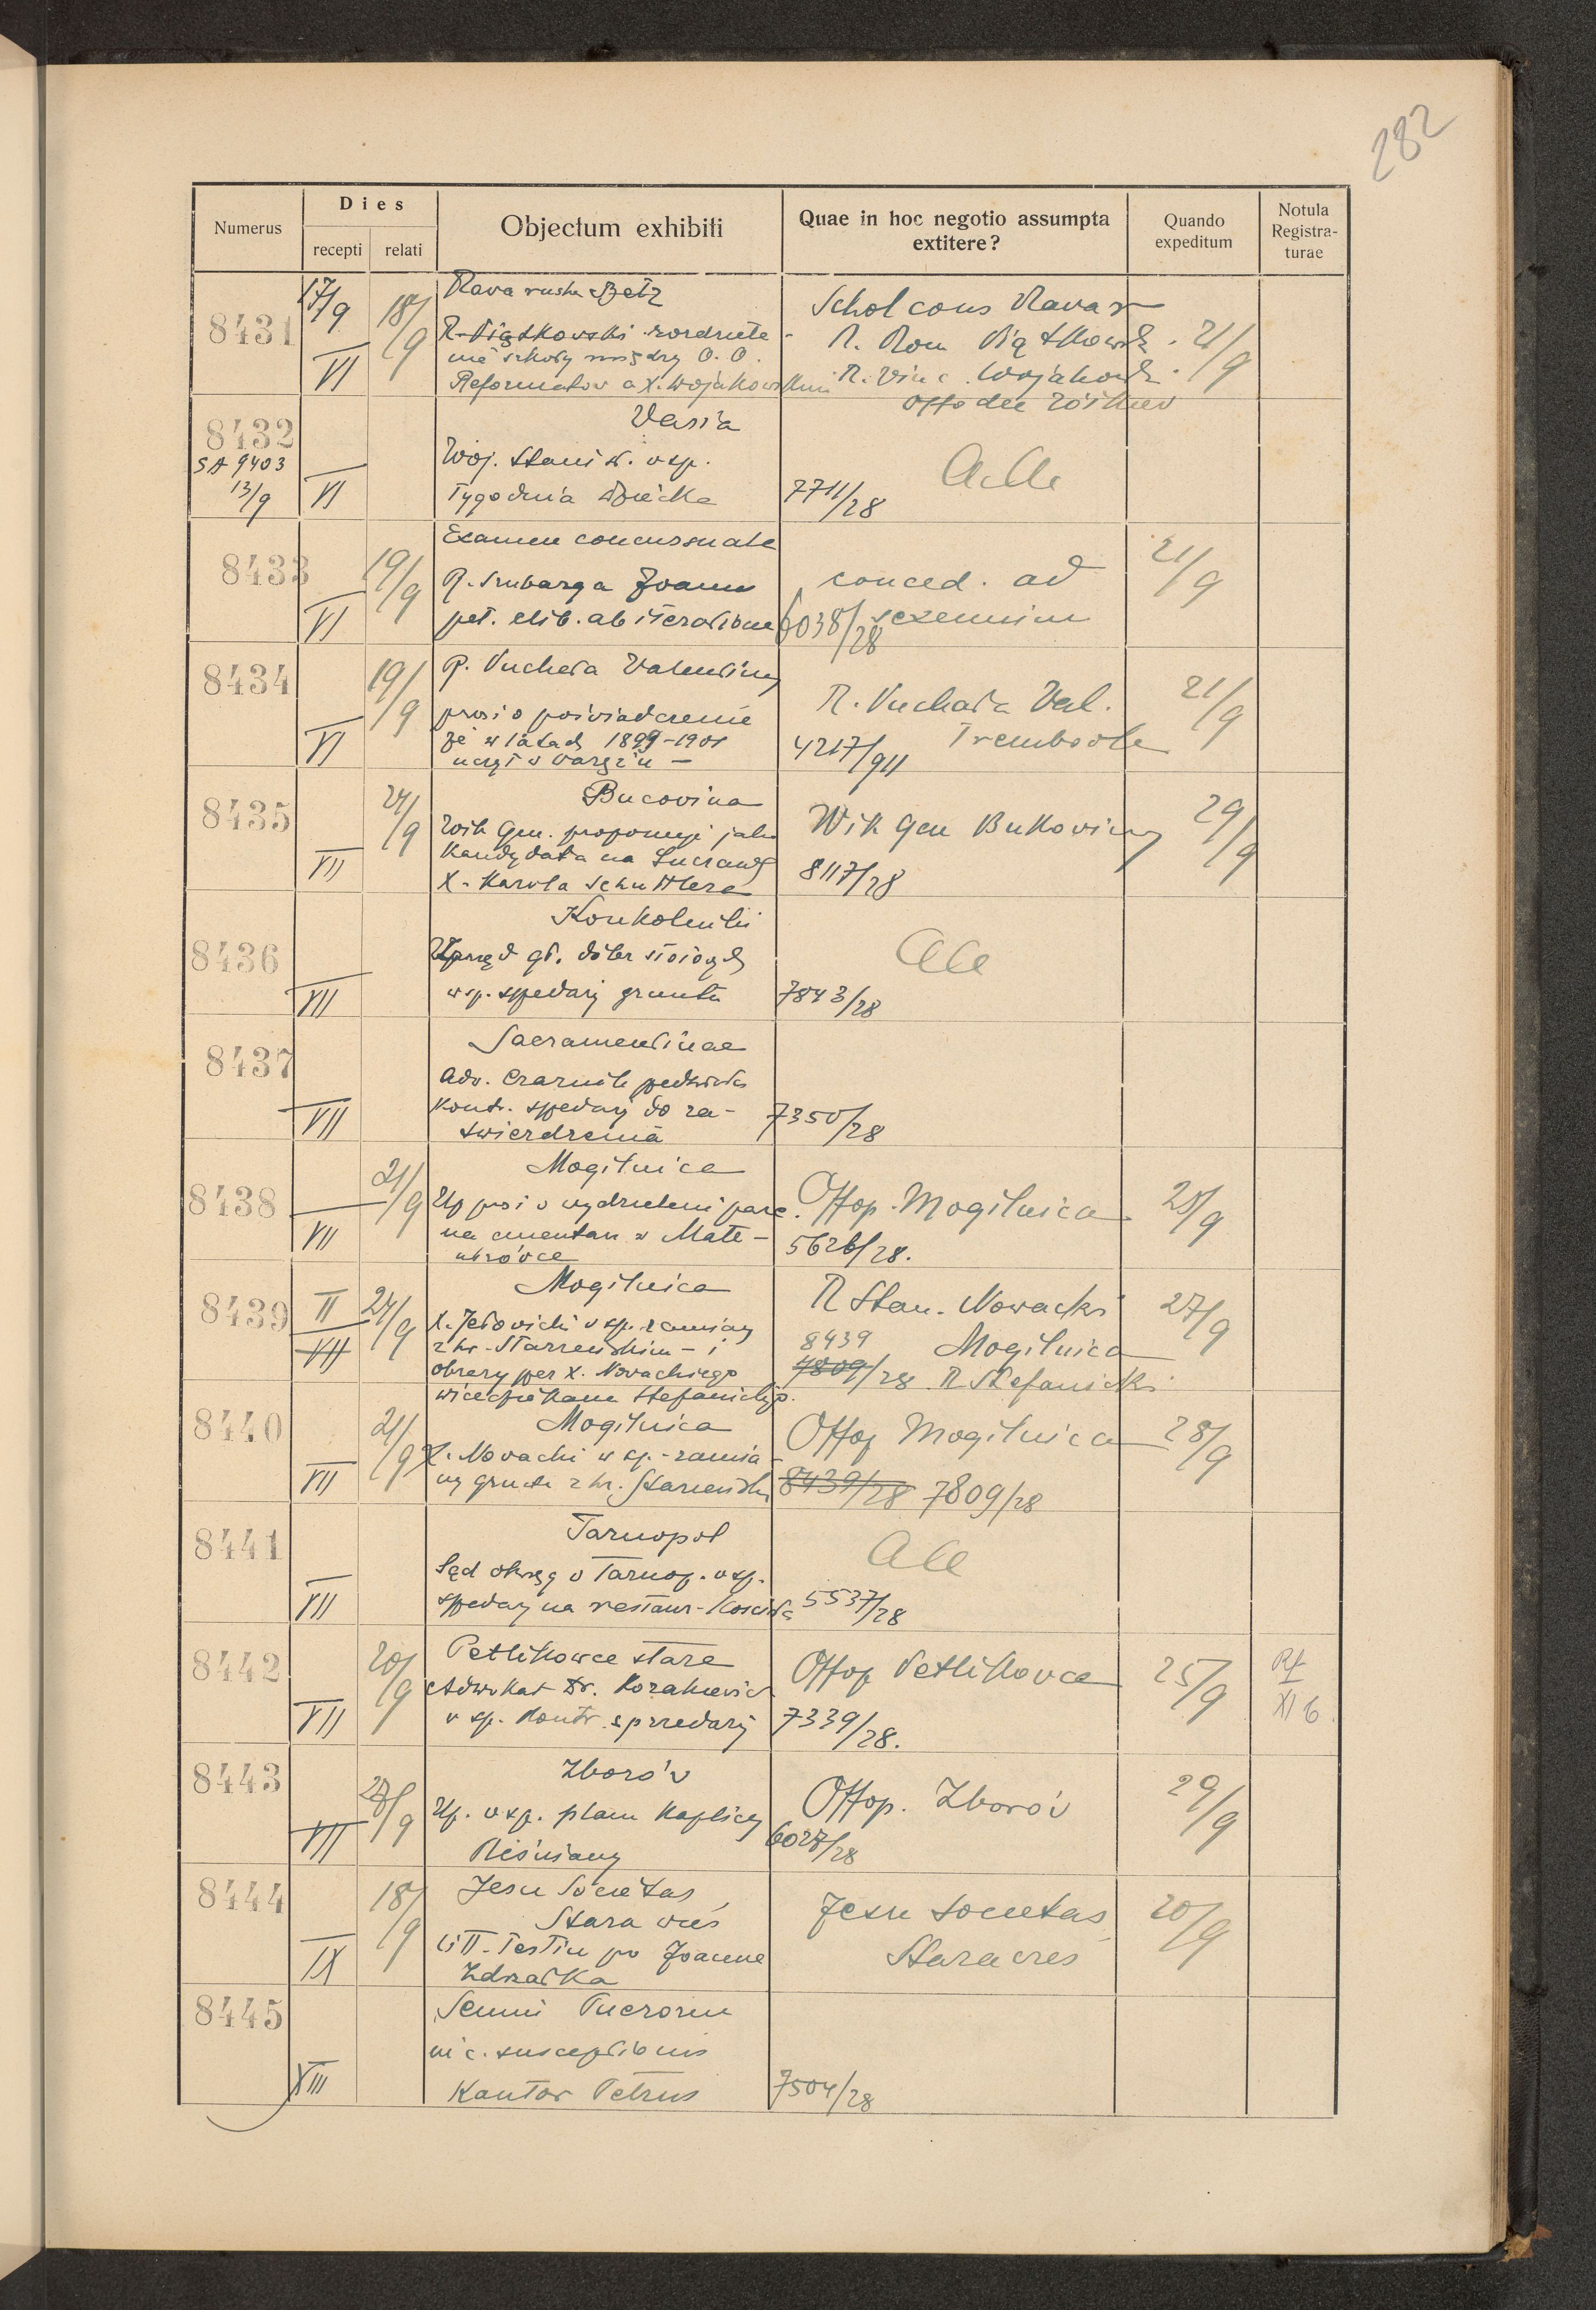 282
Numerus
Dies
recepti
relati
Objectum exhibiti
Quae in hoc negotio assumpta
extitere?
Quando
expeditum
Notula
Registra-
turae
8431
17/9
VI
18/9
Rava ruska Bełz
R. Piątkowski
szkoły między O. O.
Reformatów a X. Wojakowskim
Schol cons Rava r
R. Rom Piątkowski
R. Vinc. Wojakowski
21/9
8432
SA 9403
13/9
VI
Varia
Woj. Stanisł. wsp.
Tygodnia dziecka
7711/28
Alla
8433
VI
19/9
Examen concursuale
R. Smbarga Joannes
pet. elib. ab iteratione
conced. ad
sexennium
6038/28
21/9
8434
VI
19/9
R. Puchała Valentinus
prosi o poświadczenie
że w latach 1899-1901
uczył w Waręzu -
R. Puchała Val.
Trembovla
4217/911
21/9
8435
VII
24/9
Bucovina
Wik Gen. proponuje jako
Kandydata na Suczawę
X. Karola
Wik Gen Bukowiny
8117/28
29/9
8436
VII
Konkolniki
Urząd
wsp. sprzedaży gruntu
7843/28
8437
VII
Sacramentinae
Adv. Czarnik przedkłada
Kontr. sprzedaży do za-
twierdzenia
7350/28
8438
VII
21/9
Mogilnica
Up prosi o wydzieleni parc.
na cmentarz w Mate-
uszówce
Offop. Mogilnica
5626/28.
25/9
8439
II
VII
24/9
Mogilnica
wsp. zamiany
z hr. Starzeńskim - i
obrazy per X. Nowackiego
wicedziekana Stefanickiego.
R Stan. Nowacki
8439
Mogilnica
7809/28 R Stefanicki
27/9
8440
VII
21/9
Mogilnica
X. Nowacki w sp. zamia-
ny gruntu z hr. Starzeński
Offop Mogilnica
8439/28 7809/28
28/9
8441
VII
Tarnopol
Sąd okręg w Tarnop. wsp.
sprzedaży na restaur. Kościoła
5537/28
8442
VII
20/9
Petlikowce stare
Adwokat Dr. Kozakiewicz
w sp. Kontr. sprzedaży
Offop Petlikovce
7339/28.
25/9
XI 6
8443
VII
28/9
Zborów
Up. wsp. planu Kaplicy
Offop. Zborów
6027/28
29/9
8444
IX
18/9
Jesu Societas
Stara wieś
litt. Testim po Joanne
Jesu Societas
Stara wieś
20/9
8445
XIII
Semin Puerorum
in c. susceptionis
Kantor Petrus
7504/28